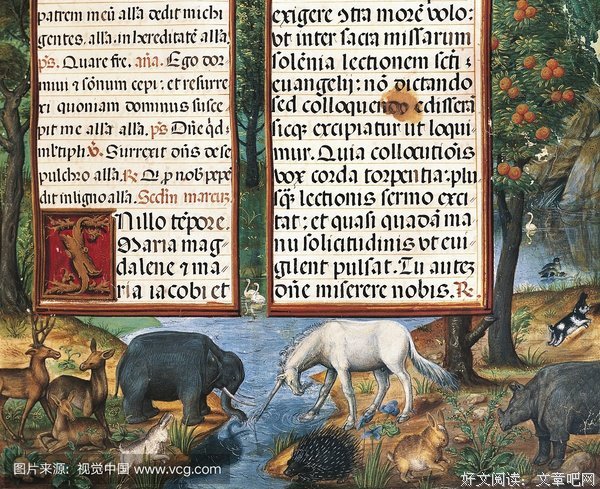 patrem meū alła dedit michi
gentes. alła. in hereditatē alła.
p̄s. Quare fre. aña. Ego dor-
miui & sōnum cepi: et resurre
xi quoniam dominus susce-
pit me alła alła. p̄s Dn̄e q̄d
ml̄tiph V. Surrexit dn̄s de se
pulchro alła. R Q. p nob̄ pepē
dit in ligno alła. Scd̄m marcū.
IN illo tēpore.
Maria mag-
dalene & ma-
ria iacobi et
exigere 9tra morē volo:
vt inter sacra missarum
solēnia lectionem sct̄i
euangelij: nō dictando
sed colloquendo edisserā
sicq̄ excipiatur ut loqui
mur. Quia collocutiōis
vox corda torpentia: plu
sq̄ȝ lectionis sermo exci
tat: et quasi quadā ma
nu solicitudinis vt eui-
gilent pulsat. Tu auteȝ
dn̄e miserere nobis. R
图片来源: 视觉中国 www.vcg.com
好文阅读: 文章吧网